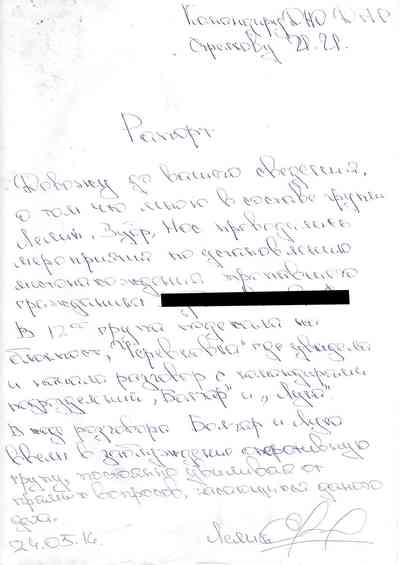 Командиру ДНО ДНР
Стрелкову И.И.
Рапорт
Довожу до вашего сведения,
о том что мною в составе группы
Лелик, Зубр, Нос проводились
мероприятия по установлению
местонахождения пропавшего
гражданина
В 12 00 группа подехала на
блокпост, "Черевковка" где
и начала разговор с командирами
подразделений "Бахтар" и "Лудо".
В ходе разговора Бахтар и Лудо
ввели в заблуждение оперативную
групу, постоянно от
прямых вопросов, касающихся даного
дела.
24.05.14. Лелик